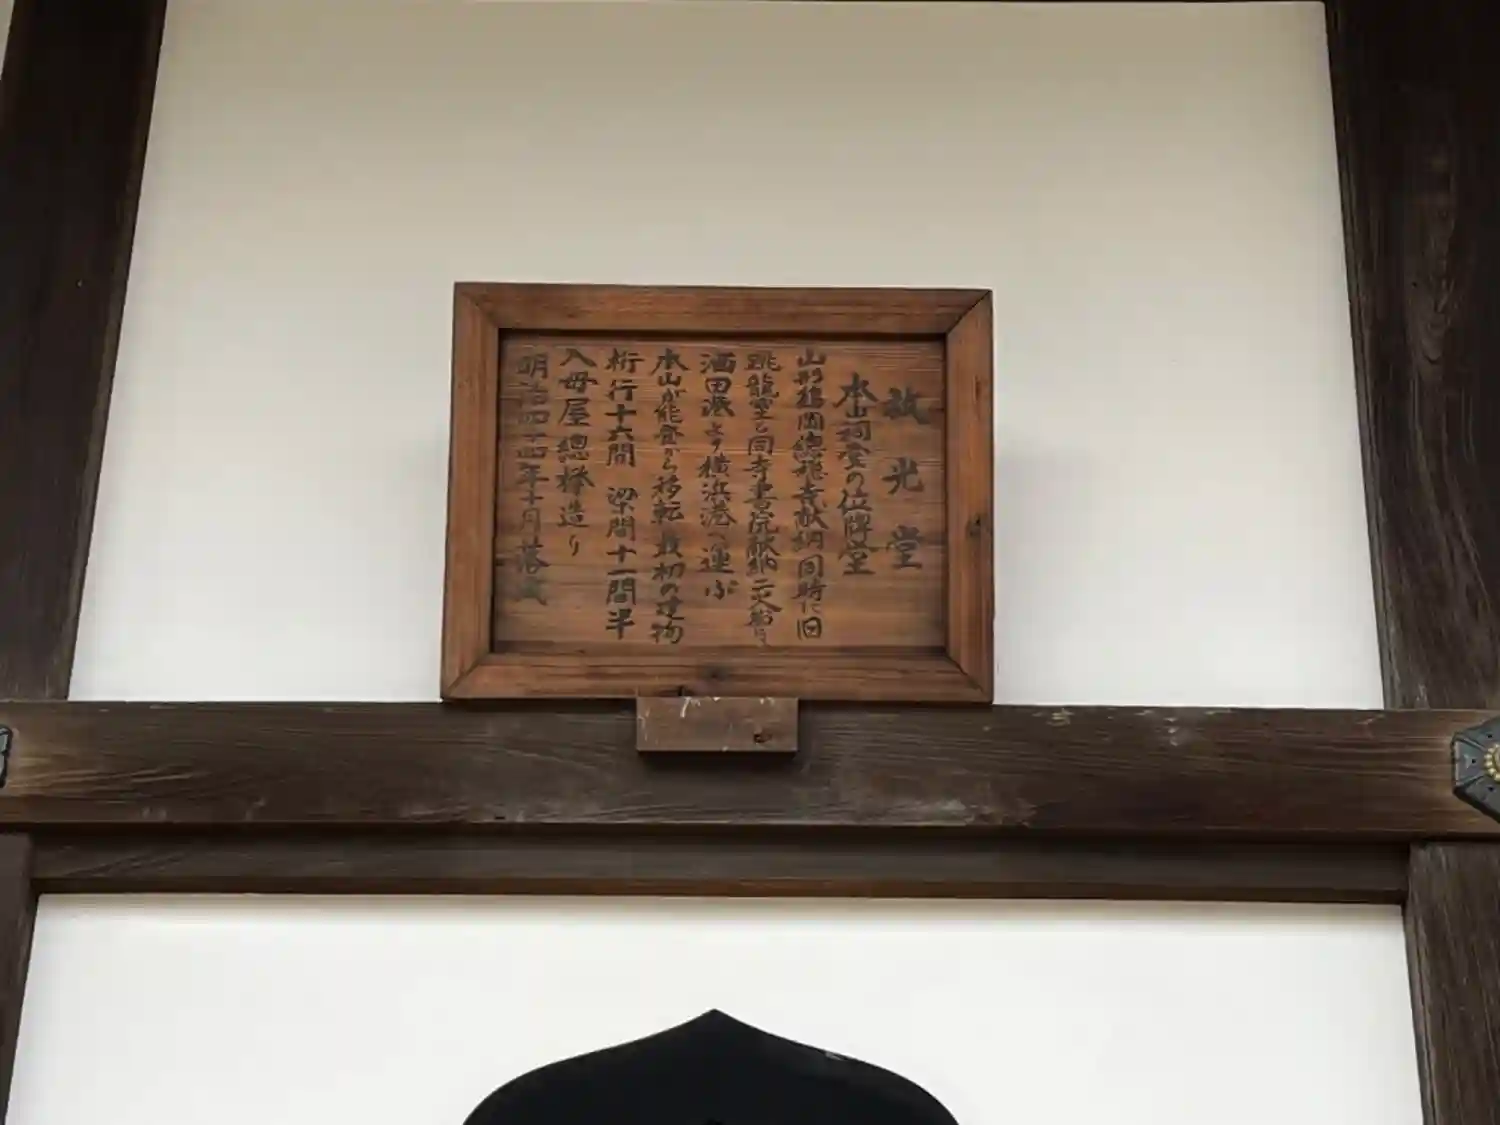 放光堂
本山祠堂の位牌堂
山形鶴岡總穏寺献納 同時に旧
跳龍室も同寺書院献納 二大船り
酒田港より横浜港へ運ぶ
本山が能登から移転最初の建物
桁行十六間 梁間十一間半
入母屋總欅造り
明治四十四年十月落成